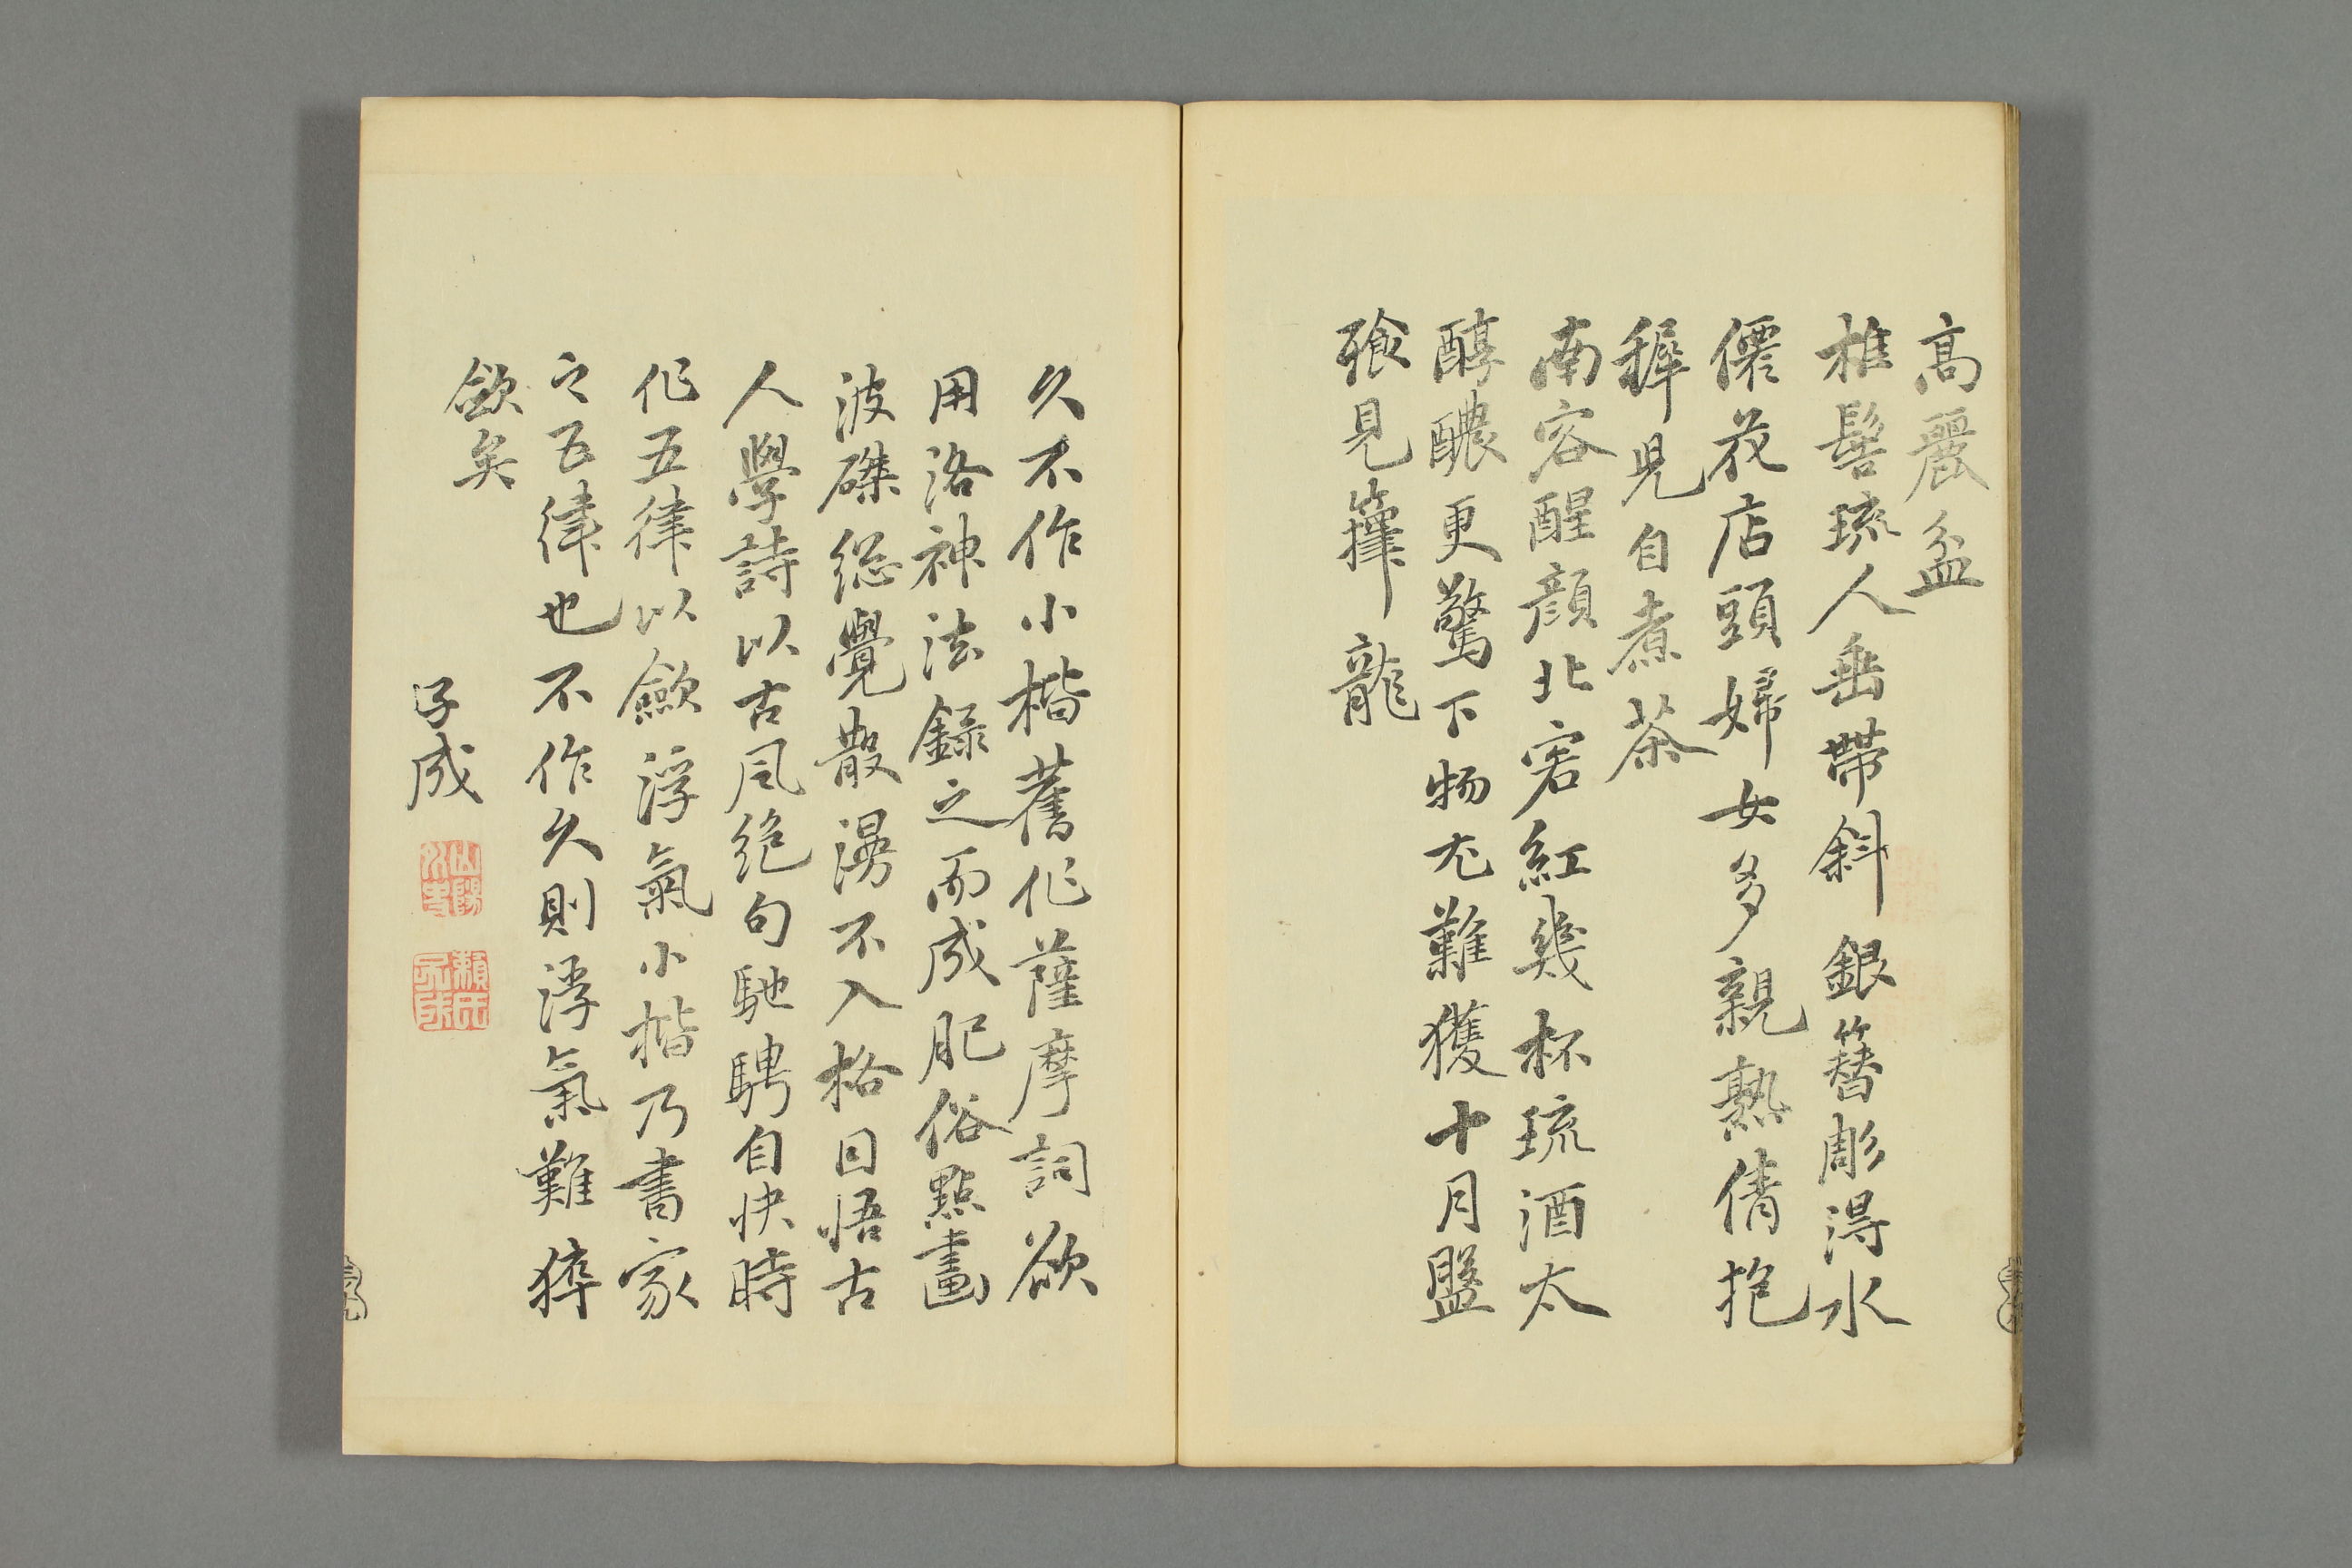 高麗盆
椎髻琉人垂帶斜銀簪彫得水
僊花店頭婦女多親熟倩抱
穉児自煮茶
南客醒顔北客紅幾杯琉酒太
醇醲更驚下物尤難獲十月盤
飱見籜龍
久不作小楷舊作薩摩詞欲
用洛神法録之而成肥俗點畫
波磔総覺散漫不入格因悟古
人學詩以古風絶句馳騁自快時
作五律以斂浮氣小楷乃書家
之五律也不作久則浮氣難猝
斂矣
子成
山陽
頼氏